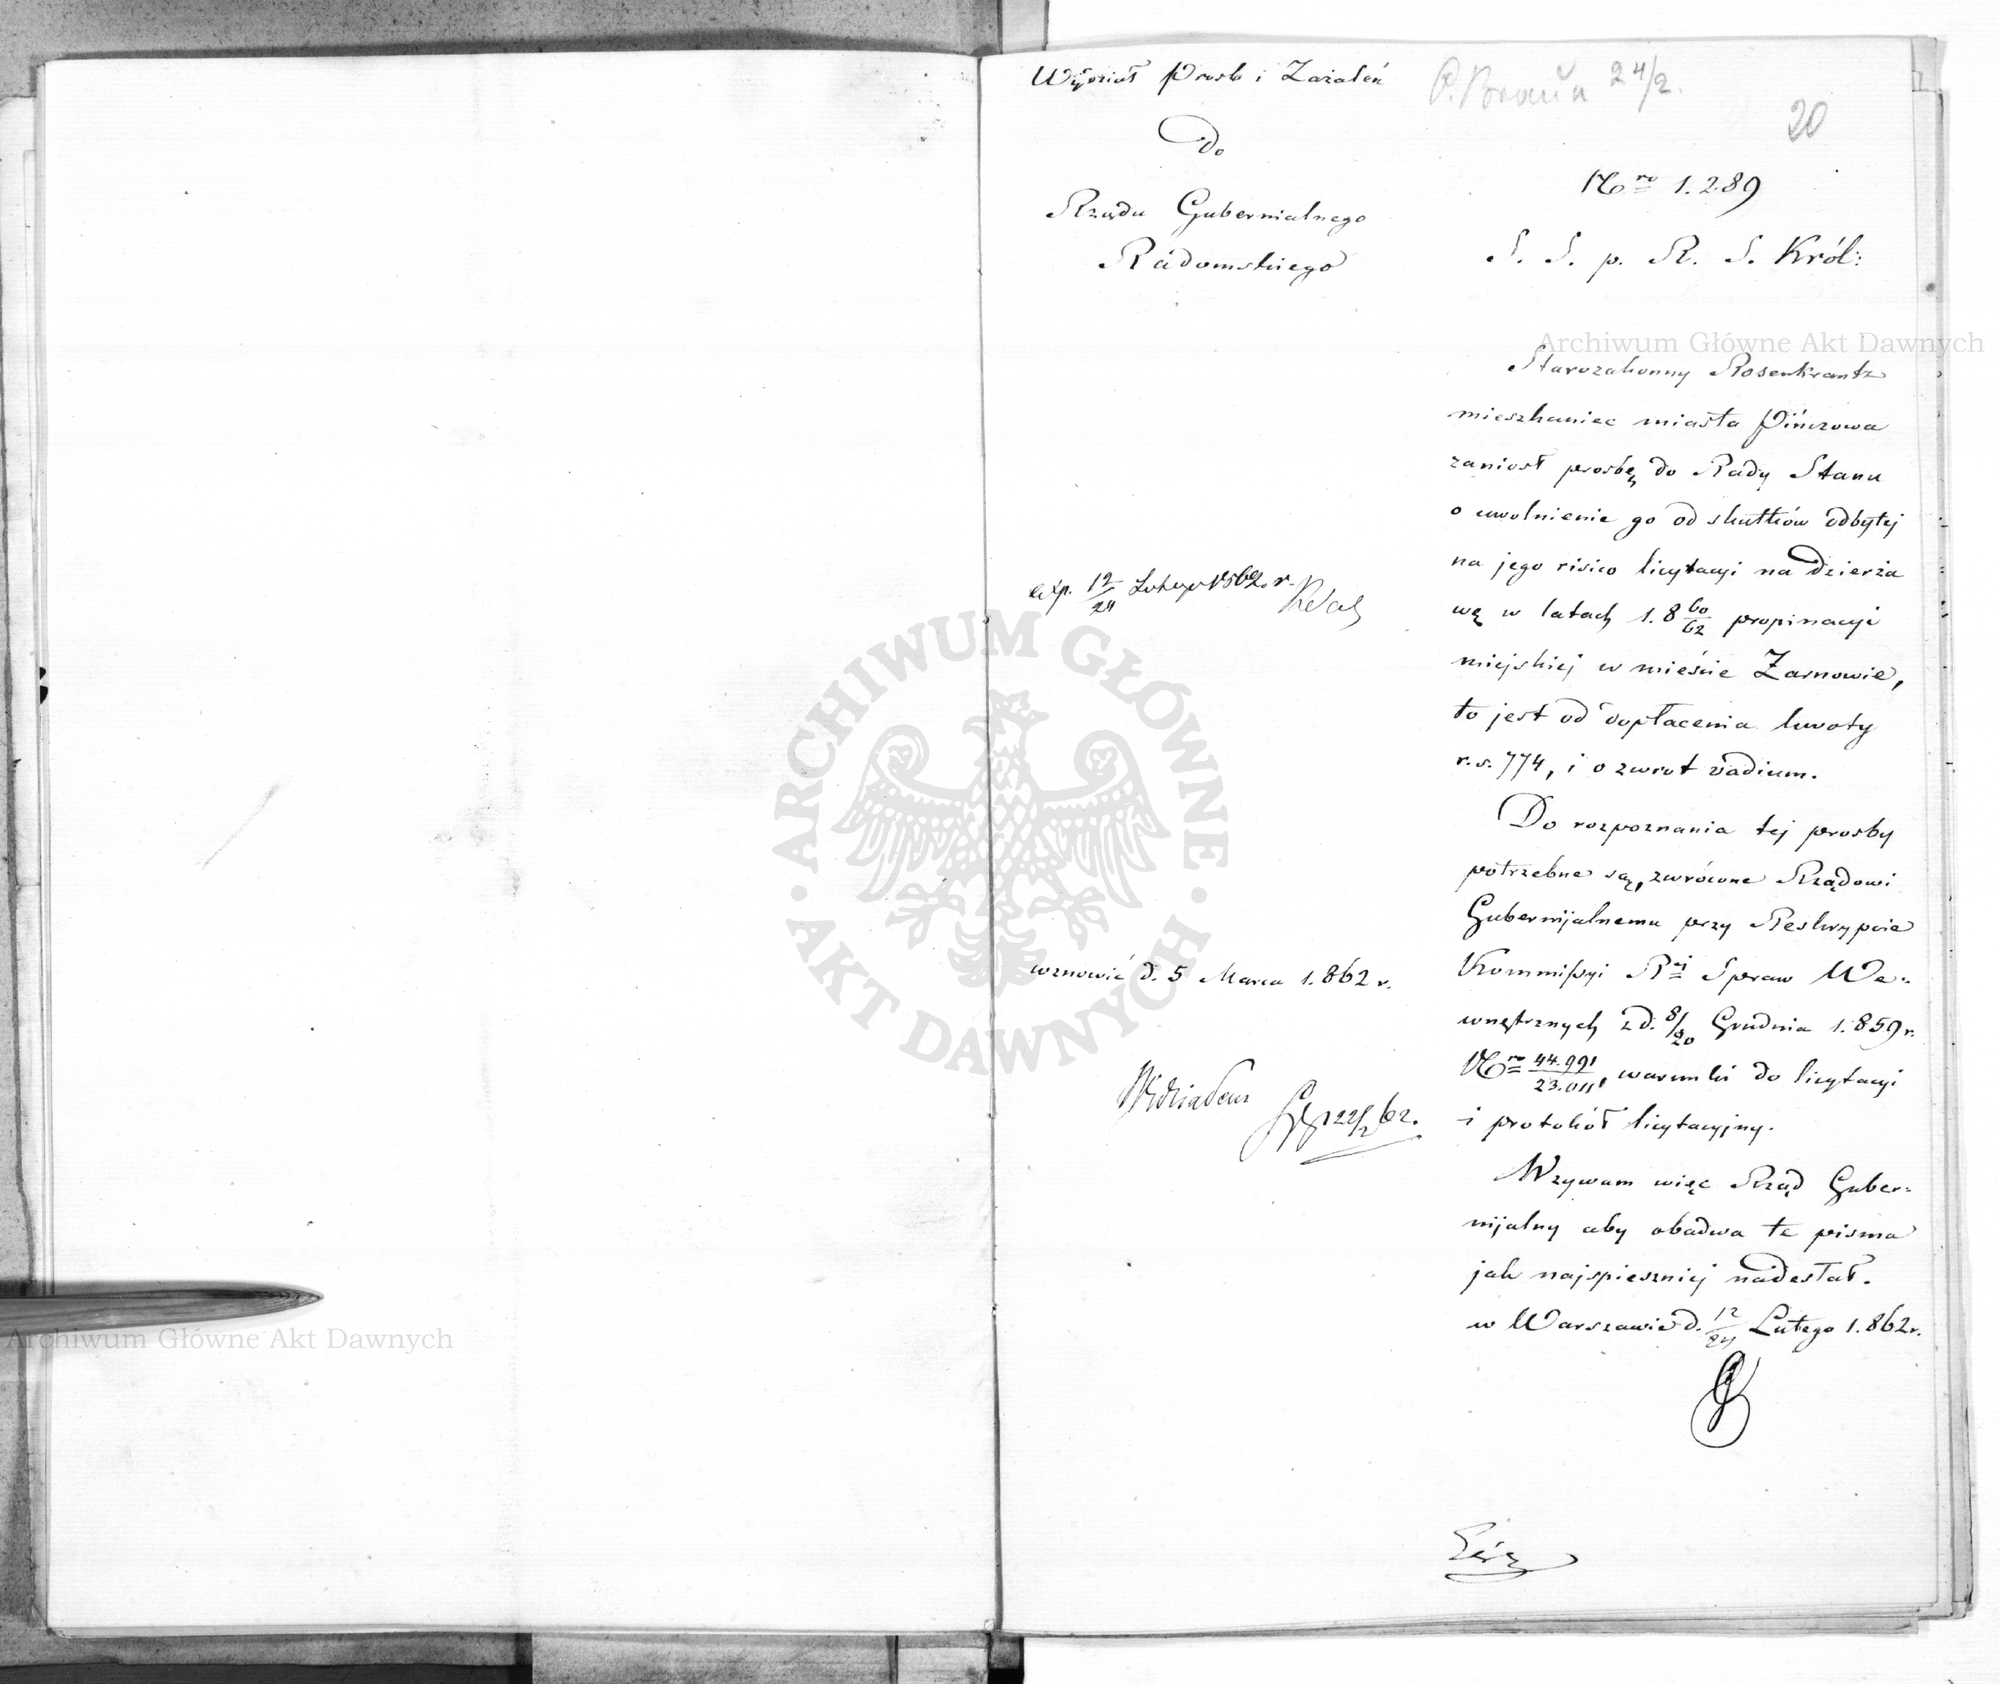 Wydział Prosb i Zażaleń
P. Braun 24/2.
20
Do
Rządu Gubernialnego
Radomskiego
Nro 1.289
S. S. p. R. S. Król:
Starozakonny Rosenkrantz
mieszkaniec miasta Pińczowa
zaniosł prosbę do Rady Stanu
o uwolnienie go od skutków odbytej
na jego risico licytacyi na dzierża
wę w latach 1.8 60/62 propinacyi
miejskiej w mieście Żarnowie,
to jest od dopłacenia kwoty
r.s. 774, i o zwrot vadium.
Do rozpoznania tej prosby
potrzebne są, zwrócone Rządowi
Gubernijalnemu przy Reskrypcie
Kommissyi Rej Spraw We-
wnętrznych z d. 8/20 Grudnia 1.859 r.
Nro 44.991/23.011, warunki do licytacyi
i protokół licytacyjny.
Wzywam więc Rząd Guber-
nijalny aby obadwa te pisma
jak najspieszniej nadesłał.
w Warszawie d. 12/24 Lutego 1.862 r.
exp. 12/24 Lutego 1862 r.
wznowić d. 5 Marca 1.862 r.
22/2 62.
Archiwum Główne Akt Dawnych
Archiwum Główne Akt Dawnych
ARCHIWUM GŁÓWNE · AKT DAWNYCH ·